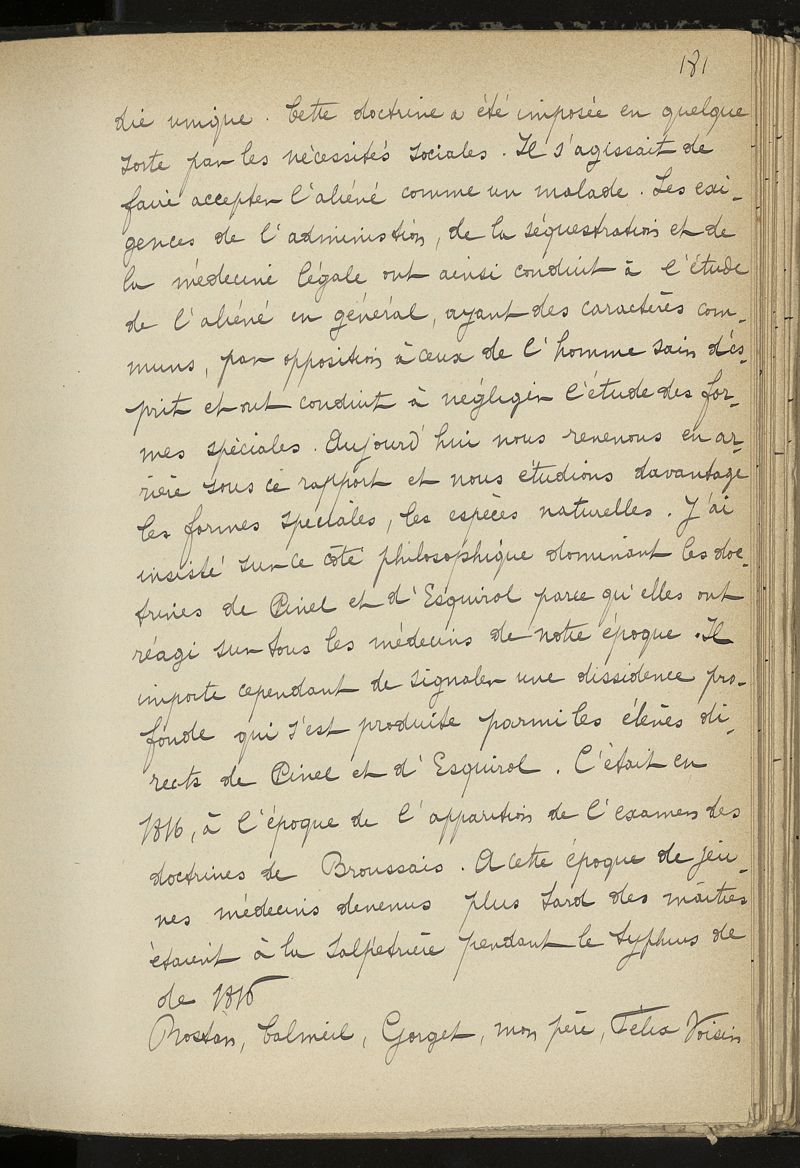 181
die unique. Cette doctrine a été imposée en quelque
sorte par les nécessités sociales. Il s'agissait de
faire accepter l'aliéné comme un malade. Les exi-
gences de l'administion, de la séquestration et de
la médecine légale ont ainsi conduit à l'étude
de l'aliéné en général, ayant des caractères com-
muns, par opposition à ceux de l'homme sain d'es-
prit et ont conduit à négliger l'étude des for-
mes spéciales. Aujourd'hui nous revenons en ar-
rière sous ce rapport et nous étudions davantage
les formes spéciales, les espèces naturelles. J'ai
insisté sur le côté philosophique dominant les doc-
trines de Pinel et d'Esquirol parce qu'elles ont
réagi sur tous les médecins de notre époque. Il
importe cependant de signaler une dissidence pro-
fonde qui s'est produite parmi les élèves di-
rects de Pinel et d'Esquirol. C'était en
1816, à l'époque de l'apparition de l'examen des
doctrines de Broussais. A cette époque de jeu-
nes médecins devenus plus tard des maîtres
étaient à la Salpêtrière pendant le typhus de
de 1816
Rostan, Calmeil, Gorget, mon père, Félix Voisin